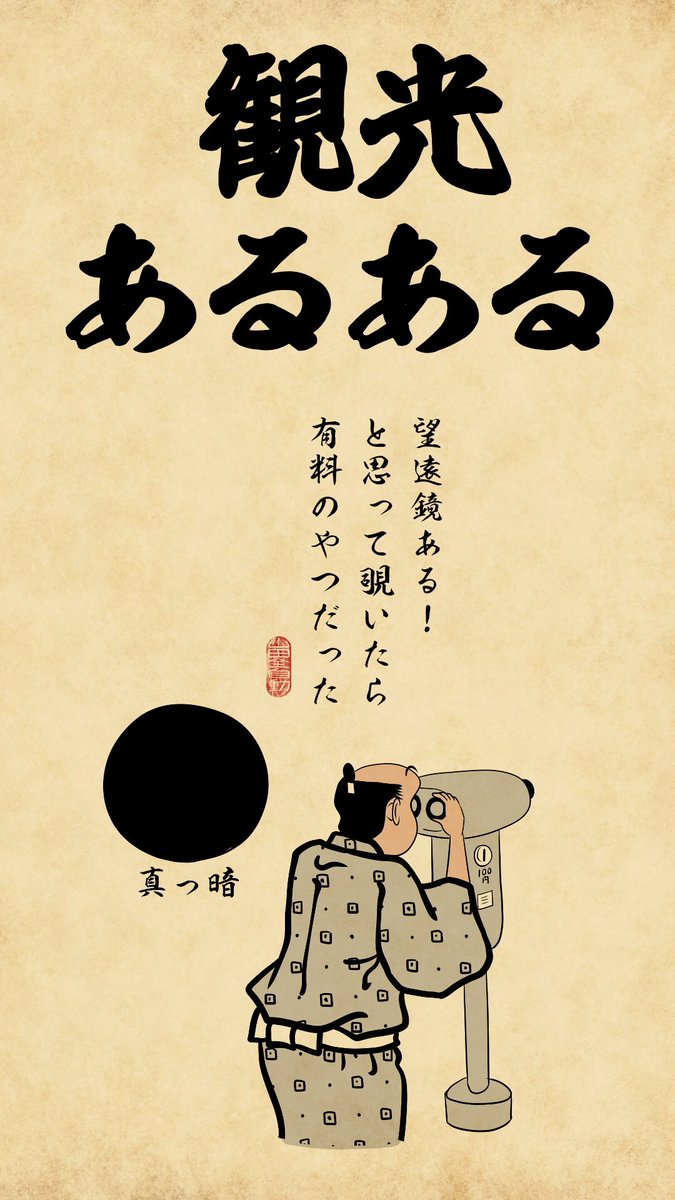 観光
あるある
望遠鏡ある！
と思って覗いたら
有料のやつだった
真っ暗
100
円